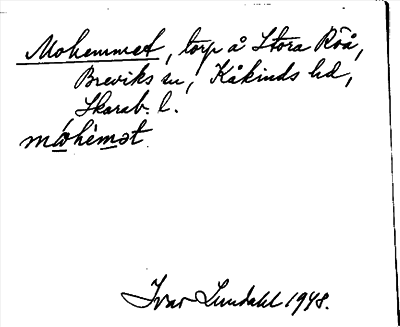 Mohemmet, torp å Stora Röå,
Breviks sn, Kåkinds hd,
Skarab. l.
móhèmət
Ivar Lundahl 1948.